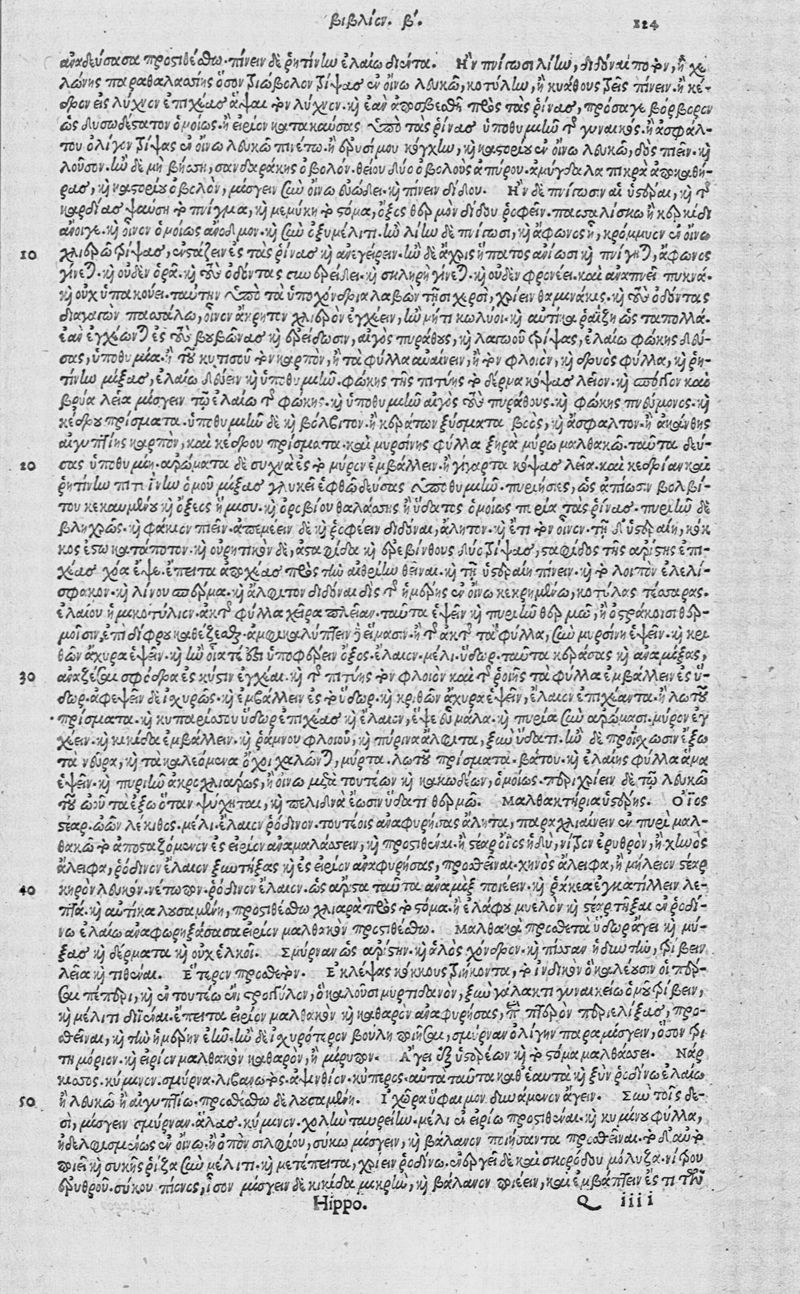 βιβλίον. β΄. 124
ἀναδεύσασα προστιθέσθω. πίνειν δὲ ῥητίνην ἐλαίω διεῖται. Ἢν πνίγωσιν, διδόναι ἢ χε
λώνης παραθαλασσίης ὅσον τριώβολον τρίψας ἐν οἴνω λευκῶ, κοτύλην, ἢ κυάθους τρεῖς πίνειν. ἢ κέ-
δρον εἰς λύχνον ἐπιχέας ἅψαι τὸν λύχνον. καὶ ἐὰν ἀποσβεσθῇ πρὸς τὰς ῥίνας, πρόσαγε βόρβορον
ὡς δυσωδέστατον ὁμοίως. ἢ εἴριον κατακαύσας ὑπὸ τὰς ῥίνας ὑποθυμιῆν τῆς γυναικός. ἢ ἀσφάλ-
του ὀλίγον τρίψας ἐν οἴνω λευκῶ πινέτω. ἢ καὶ καστορίου ἐν οἴνω λευκῶ, δὸς πιεῖν. καὶ
λοῦσον. ἢν δὲ μὴ βήσσῃ, σανδαράκης ὀβολόν. θείου δύο ὀβολοὺς ἀπύρου. ἀμύγδαλα πικρὰ ἀποκαθή-
ρας, καὶ καστορίου ὀβολὸν, μίσγειν ξὺν οἴνω εὐώδει. καὶ πίνειν δίδου. Ἢν δὲ πνίγωσιν αἱ ὑστέραι, καὶ τῆς
καρδίας ψαύσῃ τὸ πνίγμα, καὶ μεμύκῃ τὸ στόμα, ὄξος θερμὸν δίδου ῥοφεῖν. πασσαλίσκω ἢ κερκίδι
ἄνοιγε. καὶ οἶνον ὁμοίως ἀνόδμον. καὶ ξὺν ὀξυμέλιτι. ἢν δὲ πνίγωσι, καὶ ἄφωνος ᾖ, κρόμμυον ἐν οἴνω
10 χλιερῶ τρίψας, ἐνστάζειν ἐς τὰς ῥίνας καὶ ἀνεγείρειν. ἢν δὲ ἄχρις ἥπατος ἀνίωσι καὶ πνίγῃ, ἄφωνος
γίνεται. καὶ οὐδὲν ὁρᾷ. καὶ τοὺς ὀδόντας συνερείδει. καὶ σκληρὴ γίνεται. καὶ οὐδὲν φρονέει. καὶ ἀναπνεῖ πυκνά.
καὶ οὐχ ὑπακούει. ταύτην ἀπὸ τὰ ὑποχόνδρια λαβὼν τῇσι χερσὶ, χρίειν θαμινάκις. καὶ τοὺς ὀδόντας
διάγειν πασσάλω, οἶνον ἄκρητον χλιερὸν ἐγχέειν, ἢν μή τι κωλύοι. καὶ αὐτίκα ῥαΐζει ὡς τὰ πολλά.
ἐὰν ἐς τοὺς βουβῶνας καὶ ἐρείδωσιν, αἰγὸς πυράθους, καὶ λαγωοῦ τρίχας, ἐλαίω φώκης δεύ-
σας, ὑποθυμία. ἢ τοῦ κυτίσου τὸν καρπὸν, ἢ τὰ φύλλα αὐαίνειν, ἢ τὸν φλοιὸν, καὶ δρυὸς φύλλα, καὶ ῥη-
τίνην μίξας, ἐλαίω δεύειν καὶ ὑποθυμιῆν. φώκης τῆς πιτύης τὸ δέρμα κόψας λεῖον. καὶ σπόγγον καὶ
βρύα λεῖα μίσγειν τῶ ἐλαίω τῆς φώκης. καὶ ὑποθυμιῆν αἰγὸς τοὺς πυράθους. καὶ φώκης πνεύμονος. καὶ
κέδρου πρίσματα. ὑποθυμιῆν δὲ καὶ βόλβιτον. ἢ κεράτων ξύσματα βοὸς, καὶ ἄσφαλτον. ἢ ἀκάνθης
αἰγυπτίης καρπὸν, καὶ κέδρου πρίσματα. καὶ μυρσίνης φύλλα ξηρὰ μύρω μαλθακῶ. ταῦτα δεύ-
20 σας ὑποθυμιῆν. ἀρώματα δὲ συχνὰ ἐς τὸ μύρον ἐμβάλλειν. ἢ γίγαρτα κόψας λεῖα. καὶ κεδρίαν καὶ
ῥητίνην ὁμοῦ μίξας γλυκεῖ ἑφθῶ δεύσας ὑποθυμιῆν. βολβί-
του κεκαυμένου καὶ ὄξεος ἥμισυ. καὶ ὀροβίου θαλάσσης ἢ ὕδατος ὁμοίως πυρία τὰς ῥίνας. πυριῆν δὲ
βληχρῶς. καὶ φάκιον πιεῖν. ἀπεμέειν δὲ καὶ ῥοφέειν διδόναι, ἄλητον. καὶ ἔτι τὸν οἶνον. τῇ δὲ ὑστεραίῃ, κόκ
κος ἔστω κατάποτον. καὶ οὐρητικὸν δὲ, ἀσταφίδα καὶ ἐρεβίνθους λευκ τρίψας, σταφίδος τῆς ἀρίστης ἐπι-
χέας χόα ἕψε. ἔπειτα ἀποχέας πρὸς τὴν αἰθρίην θεῖναι. καὶ τῇ ὑστεραίῃ πίνειν. καὶ τὸ λοιπὸν ἐλελί-
σφακον. καὶ λίνου σπέρμα. καὶ ἄλφιτον διδόναι δὶς τῆς ἡμέρης ἐν οἴνω κεκρημένω, κοτύλας τέσσαρας.
ἐλαίου ἡμικοτύλιον. ἀκτῆς φύλλα χεῖρα πλείαν. ταῦτα ἕψειν καὶ πυριῆν θερμῶ, ἢ ὀστράκοισι θερ-
μοῖσιν, ἐπὶ δίφρου καθέζεσθαι. ἀμφικαλύπτειν εἵμασιν. ἢ τῆς ἀκτῆς τὰ φύλλα, ξὺν μυρσίνῃ ἕψειν. καὶ κρι
θῶν ἄχυρα ἕψειν. καὶ ἢν οἵα τε ᾖ ὑποφέρειν ὄξος. ἔλαιον. μέλι. ὕδωρ. ταῦτα κεράσας καὶ ἀναμίξας,
30 ἀναζέσαι σφόδρα ἐς κύστιν ἐγχέαι. καὶ τῆς πιτύης τὸν φλοιὸν καὶ τῆς ῥοιῆς τὰ φύλλα ἐμβάλλειν ἐς ὕ-
δωρ. ἀφεψεῖν δὲ ἰσχυρῶς. καὶ ἐμβάλλειν ἐς τὸ ὕδωρ. καὶ κριθῶν ἄχυρα ἕψειν, ἔλαιον ἐπιχέαντα. ἢ λωτοῦ
πρίσματα. καὶ κυπαρίσσου ὕδωρ ἐπιχέας καὶ ἔλαιον, ἕψε εὖ μάλα. καὶ πυρία ξὺν ἀρώμασι. μύρον ἐγ
χέειν. καὶ κικίδα ἐμβάλλειν. καὶ ῥάμνου φλοιοῦ, καὶ πύρινα ἄλφιτα, ξὺν ὕδατι. ἢν δὲ προΐσχωσιν ἔξω
τὰ νεῦρα, καὶ τὰ καλεόμενα ὄχοι χαλῶνται, μύρτα. λωτοῦ πρίσματα. βάτου. καὶ ἐλαίης φύλλα ἅμα
ἕψειν. καὶ πυριῆν ἀκροχλιάρως, ἢ οἴνω μετὰ τουτέων καὶ κακωδέων, ὁμοίως. περιχρίειν δὲ τῶ λευκῶ
τοῦ ὠοῦ τὰ ἔξω ὅταν ψύχηται, καὶ πελιδνὰ ἔωσιν ὕδατι θερμῶ. Μαλθακτήρια ὑστέρης. Οἶος
στέαρ. ὠῶν λέκιθος. μέλι. ἔλαιον ῥόδινον. τουτέοις ἀναφυρήσας ἄλητα, παραχλιαίνειν ἐν πυρὶ μαλ-
θακῶ καὶ ἀποσταζομένων ἐς εἴριον ἀναμαλάσσειν, καὶ προστιθέναι. ἢ στέαρ οἶος ἡδὺ, νίτρον ἐρυθρὸν, ἢ χηνὸς
ἄλειφα, ῥόδινον ἔλαιον ξυντήξας καὶ ἐς εἴριον ἀναφυρήσας, προσθεῖναι. χηνὸς ἄλειφα, ἢ μήλειον στέαρ
40 κηρὸν λευκὸν. νέτωπον. ῥόδινον ἔλαιον. ὡς ἄριστα ταῦτα ἀναμὶξ ποιέειν. καὶ ῥάκεα ἐγκατίλλειν λε-
πτὰ. καὶ αὐτίκα λουσαμένη, προστιθέσθω χλιαρὰ πρὸς τὸ στόμα. ἢ ἐλάφου μυελὸν καὶ στέαρ τῆξαι ἐν ῥοδί-
νω ἐλαίω ἀναφορήξασα εἴριον μαλθακὸν προστιθέσθω. Μαλθακὰ πρόσθετα ὕδωρ ἄγει καὶ μύ-
ξας καὶ δέρματα καὶ οὐχ ἑλκοῖ. Σμύρναν ὡς ἀρίστην. καὶ ἁλὸς χόνδρον. καὶ πίσσαν ἡδυντὴν, τρίβειν
λεῖα καὶ τιθέναι. Ἕτερον πρόσθετον. Ἐκλέψας κόκκους τριήκοντα, τὸ ἰνδικὸν ὃ καλέουσιν οἱ πέρ-
σαι πέπερι, καὶ ἐν τουτέω ἔνι στρογγύλον, ὃ καλοῦσι μυρτιδανὸν, ξὺν γάλακτι γυναικείω ὁμοῦ τρίβειν,
καὶ μέλιτι διεῖναι. ἔπειτα εἴριον μαλθακὸν καὶ καθαρὸν ἀναφυρήσας, περὶ πτερὸν περιελίξας, προσ-
θεῖναι, καὶ τὴν ἡμέρην ἐᾶν. ἢν δὲ ἰσχυρότερον βούλῃ ποιῆσαι, σμύρναν ὀλίγην παραμίσγειν, ὅσον τρί-
τη μόριον. καὶ εἴριον μαλθακὸν καθαρὸν, ἢ μέρυπον. Ἄγει ἐξ ὑστερέων καὶ τὸ στόμα μαλθάσσει. Νάρ
κισσος. κύμινον. σμύρνα. λιβανωτὸς. ἀψίνθιον. κύπερος. αὐτὰ ταῦτα καθ᾽ ἑαυτὰ καὶ ξὺν ῥοδίνω ἐλαίω
50 ἢ λευκῶ ἢ αἰγυπτίω. προστιθέσθω δὲ λουσαμένη. Ἰχῶρα ὕφαιμον δυνάμενον ἄγειν. Ξὺν τοῖς δε-
σι, μίσγειν σμύρναν. ἅλας. κύμινον. χολὴν ταυρείην. μέλι ἐν εἰρίω προστιθέναι. καὶ κυμίνου φύλλα,
ἐν οἴνω. ἢ ὀπὸν σιλφίου, σύκω μίσγειν, καὶ βάλανον ποιήσαντα προσθεῖναι. τὸ δ᾽ αὐτὸ
ποιεῖ καὶ συκῆς ῥίζα ξὺν μέλιτι. καὶ μετέπειτα, χρίειν ῥοδίνω. ἐνεργεῖ δὲ καὶ σκορόδου μόλυζα. νίτρου
ἐρυθροῦ. σύκου πίονος, ἶσον μίσγειν δὲ κικίδα μικρὴν, καὶ βάλανον ποιέειν, καὶ ἐμβάπτειν ἔς τι τῶν
Hippo. Q iiii